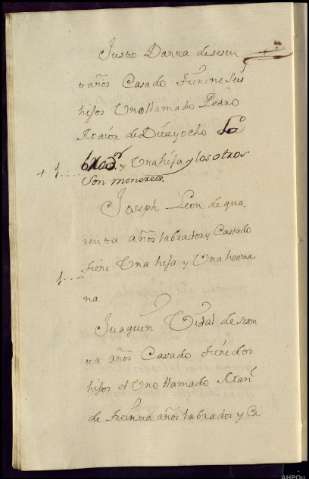 Justo Darra de sesen
ta años Casado tiene seis
hijos Uno llamado Pedro
de Diziocho
y Una hija y los otros
Son menores
Joseph Leon de qua
renta años labrador y Casado
tiene Una hija y Una herma
na
Juaquin Vidal de sesen
ta años Casado tiene dos
hijos el Uno llamado Man.
de treinta años labrador y Ca
AHPOu